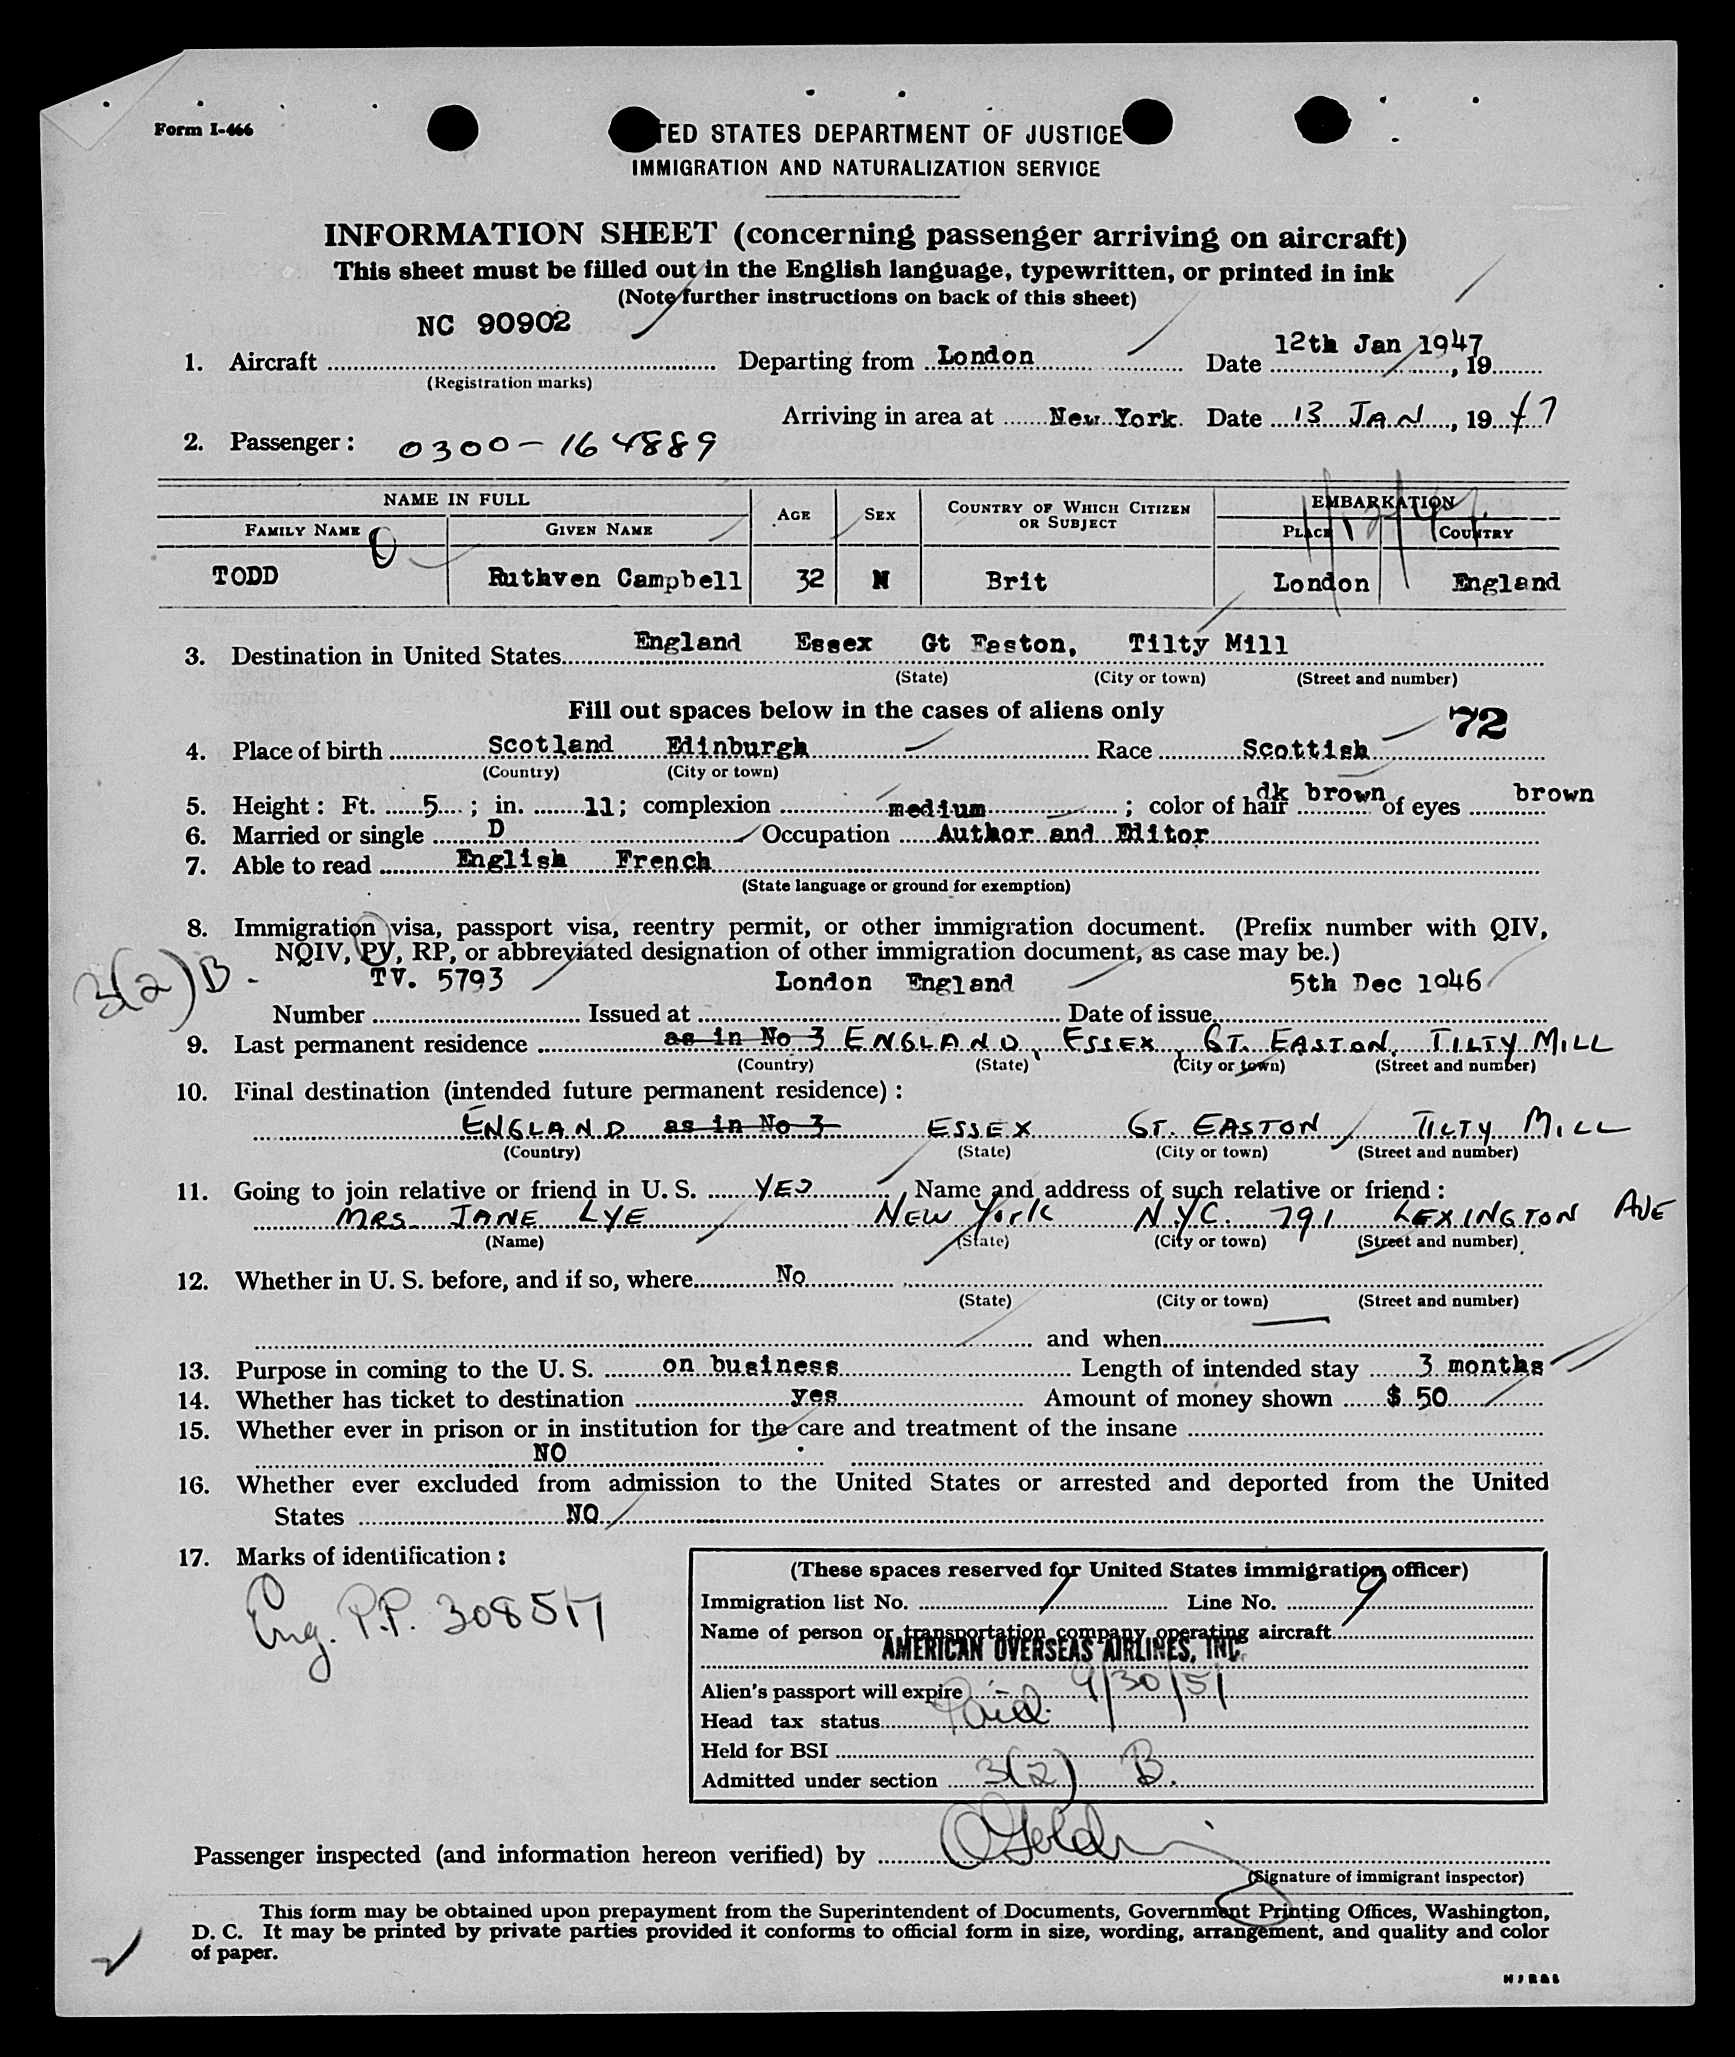 Form I-466
TED STATES DEPARTMENT OF JUSTICE
IMMIGRATION AND NATURALIZATION SERVICE
INFORMATION SHEET (concerning passenger arriving on aircraft)
This sheet must be filled out in the English language, typewritten, or printed in ink
(Note further instructions on back of this sheet)
1. Aircraft NC 90902 Departing from London Date 12th Jan 1947, 19
(Registration marks)
Arriving in area at New York. Date 13 JAN, 1947
2. Passenger: 0300-164889
NAME IN FULL AGE SEX COUNTRY OF WHICH CITIZEN OR SUBJECT EMBARKATION
FAMILY NAME GIVEN NAME PLACE COUNTRY
TODD Ruthven Campbell 32 M Brit London England
3. Destination in United States England Essex Gt Easton, Tilty Mill
(State) (City or town) (Street and number)
Fill out spaces below in the cases of aliens only
72
4. Place of birth Scotland Edinburgh Race Scottish
(Country) (City or town)
5. Height: Ft. 5; in. 11; complexion medium; color of hair dk brown of eyes brown
6. Married or single D Occupation Author and Editor
7. Able to read English French
(State language or ground for exemption)
8. Immigration visa, passport visa, reentry permit, or other immigration document. (Prefix number with QIV,
NQIV, PV, RP, or abbreviated designation of other immigration document, as case may be.)
3(2)B -
Number TV. 5793 Issued at London England Date of issue 5th Dec 1946
9. Last permanent residence as in No 3 ENGLAND, ESSEX GT. EASTON, TILTY MILL
(Country) (State) (City or town) (Street and number)
10. Final destination (intended future permanent residence):
ENGLAND as in No 3 ESSEX GT. EASTON TILTY MILL
(Country) (State) (City or town) (Street and number)
11. Going to join relative or friend in U. S. YES, Name and address of such relative or friend:
MRS JANE LYE NEW YORK N.Y.C. 791 LEXINGTON AVE
(Name) (State) (City or town) (Street and number)
12. Whether in U. S. before, and if so, where No
(State) (City or town) (Street and number)
and when
13. Purpose in coming to the U. S. on business Length of intended stay 3 months
14. Whether has ticket to destination yes Amount of money shown $ 50
15. Whether ever in prison or in institution for the care and treatment of the insane
NO
16. Whether ever excluded from admission to the United States or arrested and deported from the United
States NO
17. Marks of identification:
Eng. P.P. 308517
(These spaces reserved for United States immigration officer)
Immigration list No. 1 Line No. 9
Name of person or transportation company operating aircraft
AMERICAN OVERSEAS AIRLINES, INC.
Alien's passport will expire 9/30/51
Head tax status Paid.
Held for BSI
Admitted under section 3(2) B.
Passenger inspected (and information hereon verified) by
(Signature of immigrant inspector)
This form may be obtained upon prepayment from the Superintendent of Documents, Government Printing Offices, Washington,
D. C. It may be printed by private parties provided it conforms to official form in size, wording, arrangement, and quality and color
of paper.